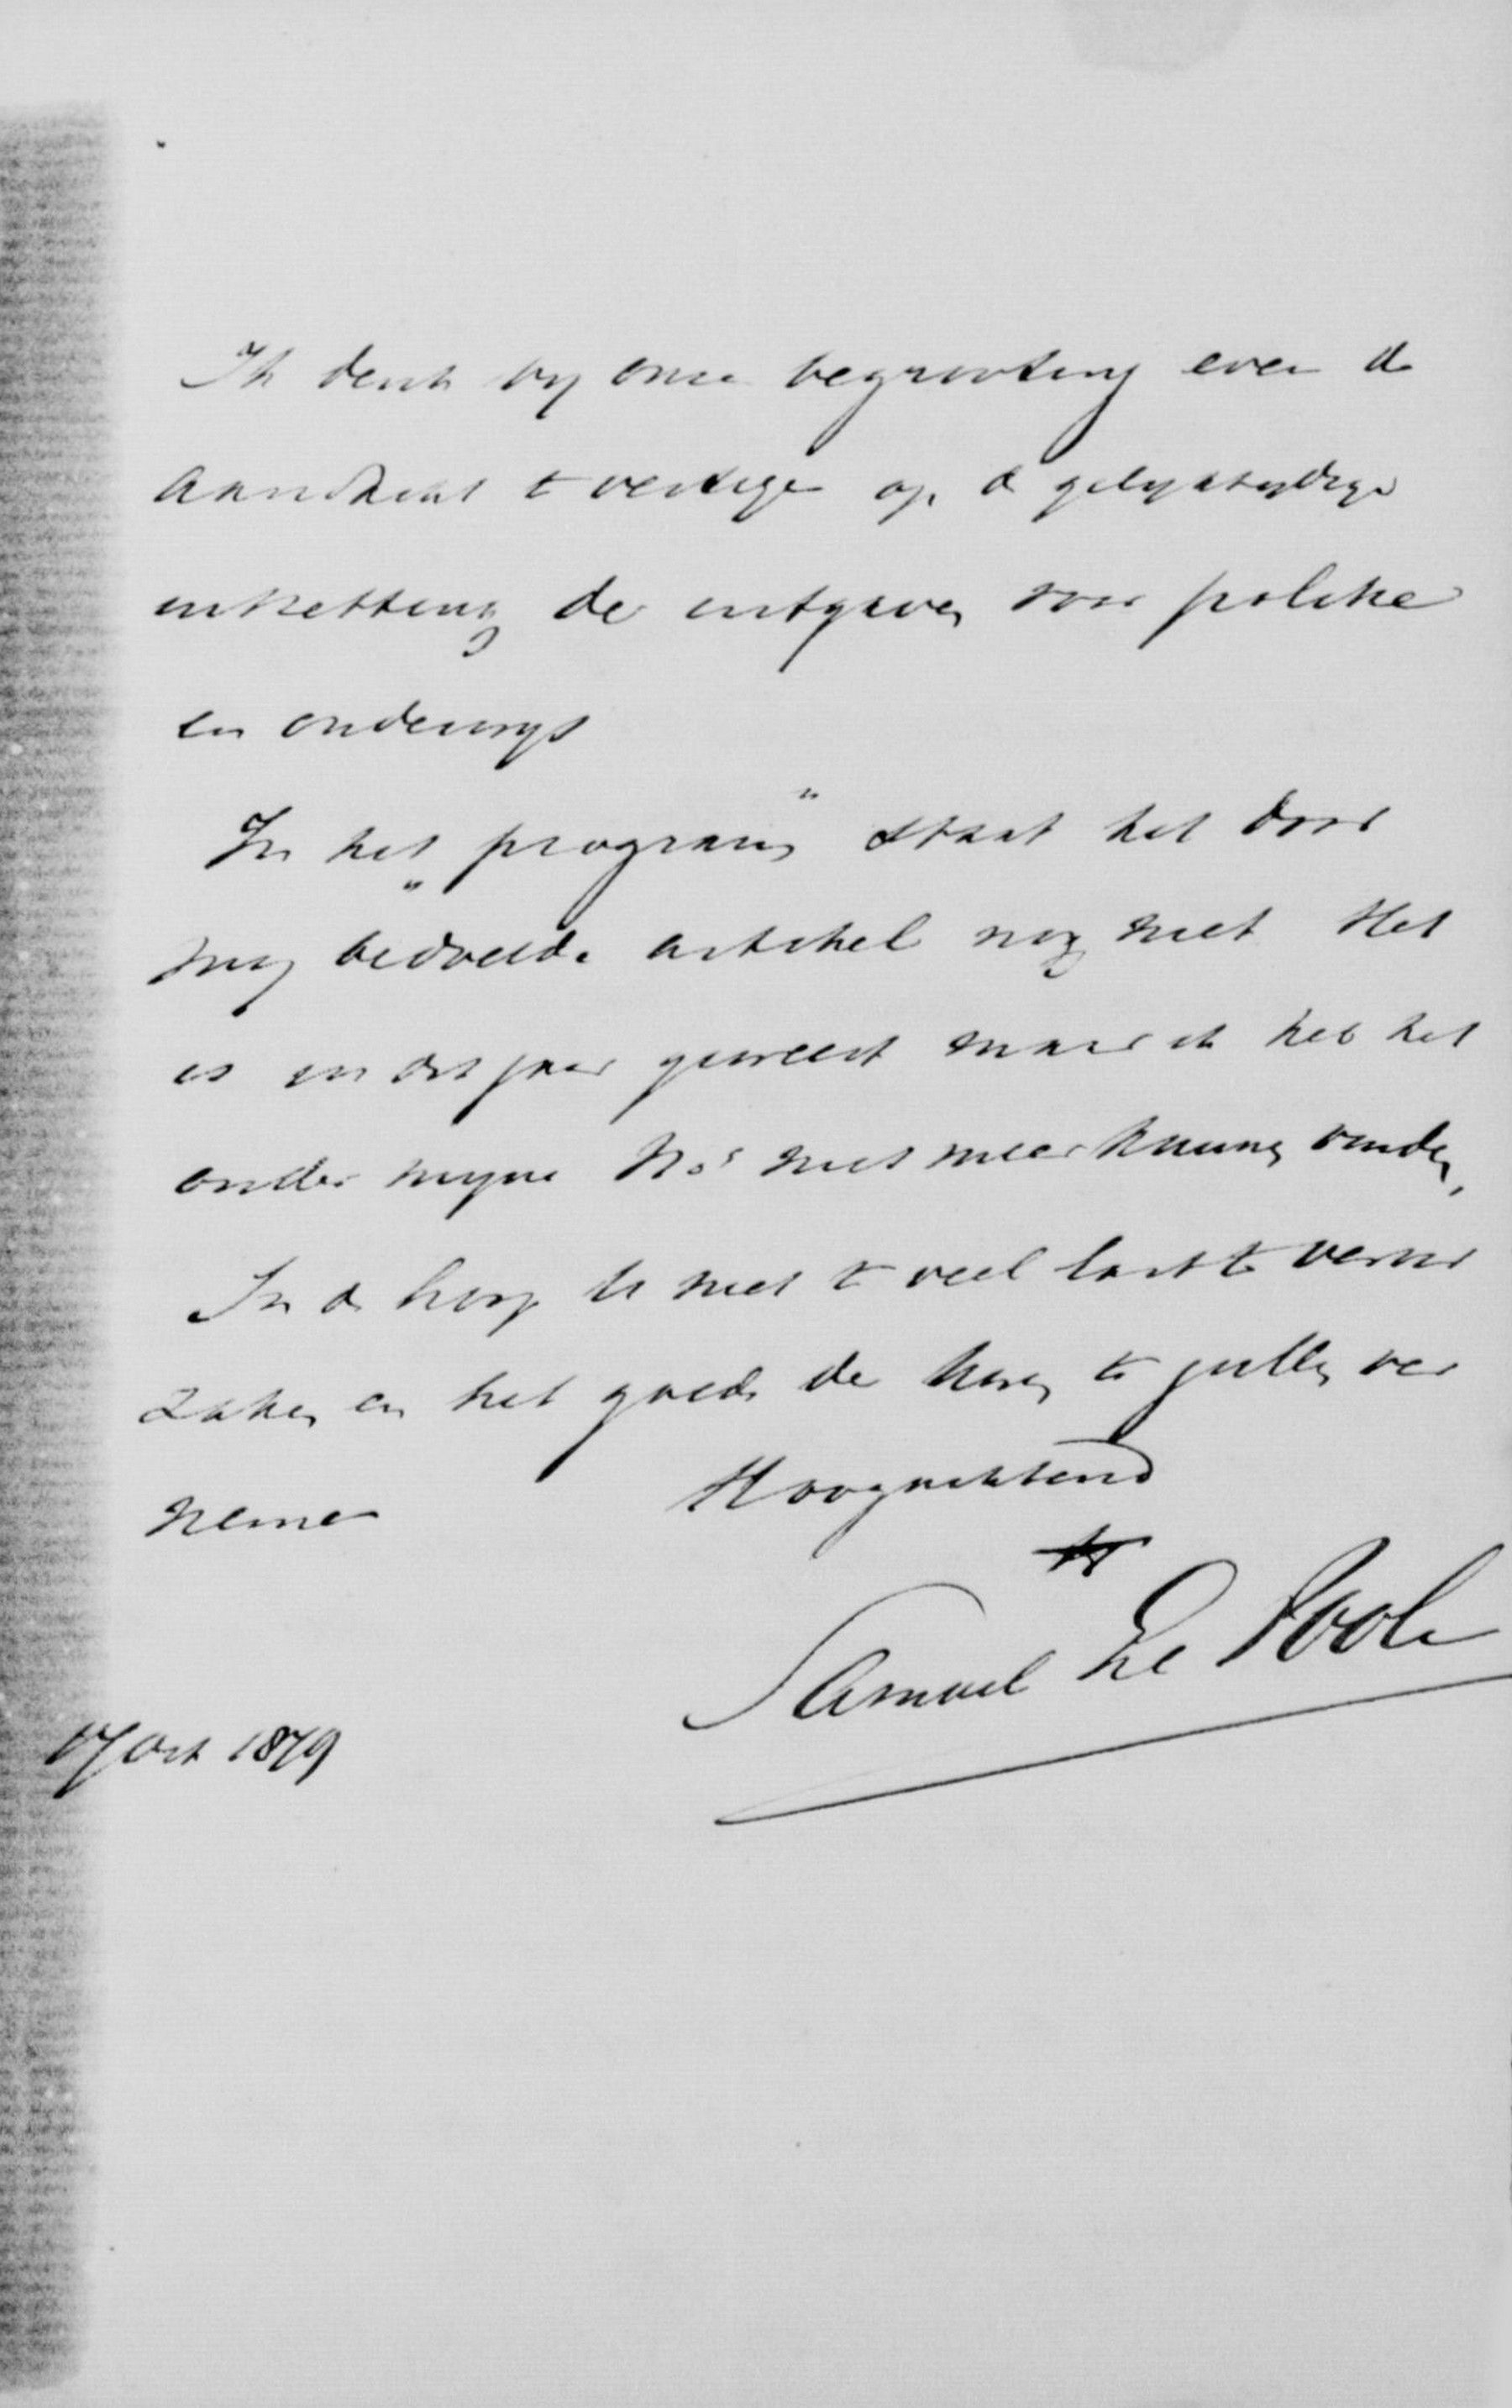 Ik denk by onze begrooting even de
aandacht te vestigen op de gelyktydige
inkrimping der uitgaven voor politie
en onderwys
In het „program" staat het door
my bedoelde artikel nog niet Het
is in dit jaar geweest maar ik heb het
onder myne Nos niet meer kunnen vinden,
In de hoop U niet te veel last te veroor
zaken en het goede der heren te zullen ver
nemen
Hoogachtend
Samuel Le Poole
17 Oct 1879